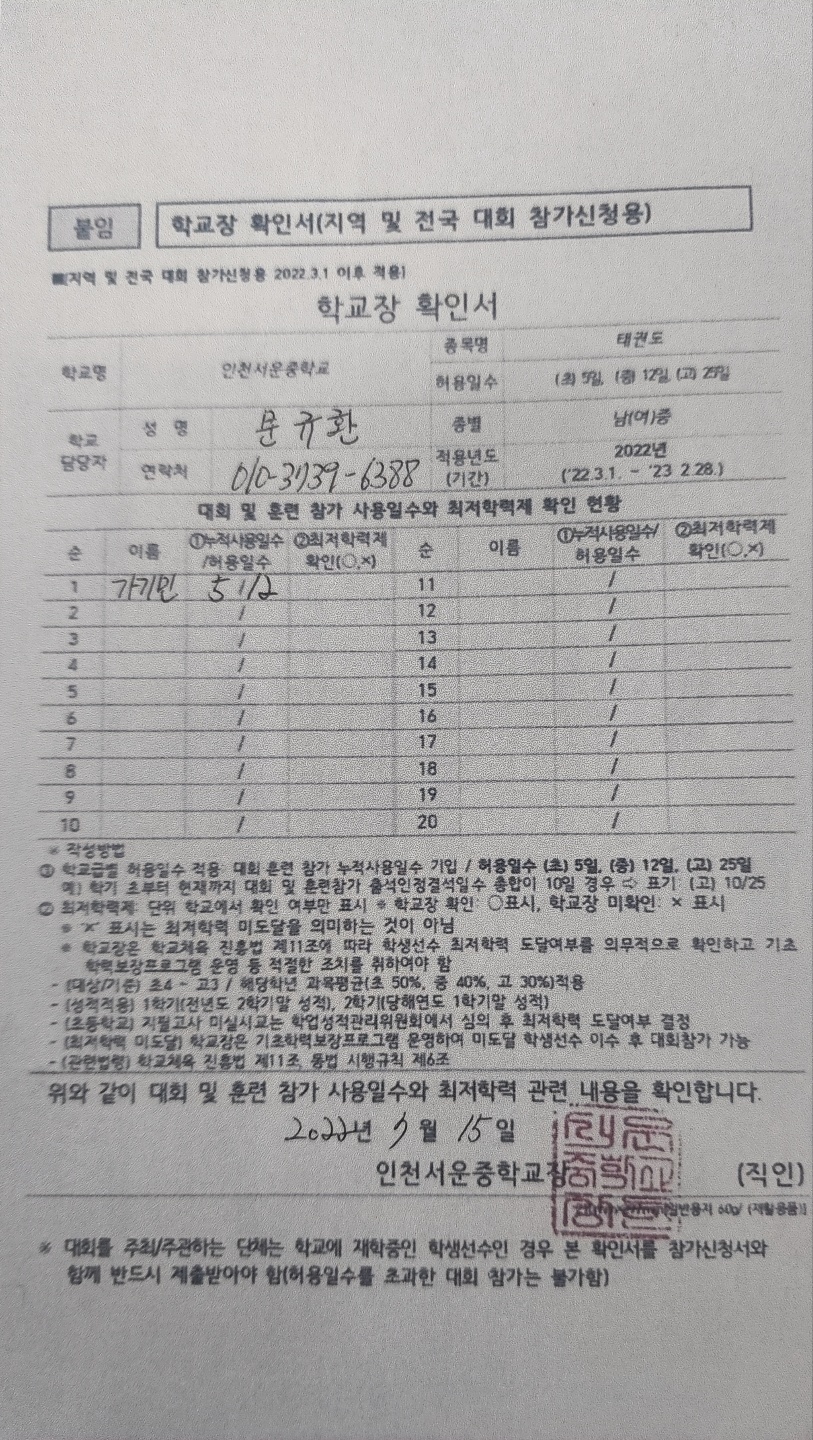 붙임 학교장 확인서(지역 및 전국 대회 참가신청용)
■[지역 및 전국 대회 참가신청용 2022.3.1 이후 적용]
학교장 확인서
학교명 인천서운중학교 종목명 태권도
허용일수 (초) 5일, (중) 12일, (고) 25일
학교 담당자 성 명 문규환 종별 남(여)중
연락처 010-3739-6388 적용년도 (기간) 2022년 ('22.3.1. - '23 2.28.)
대회 및 훈련 참가 사용일수와 최저학력제 확인 현황
순 이름 ①누적사용일수/허용일수 ②최저학력제 확인(○,×) 순 이름 ①누적사용일수/허용일수 ②최저학력제 확인(○,×)
1 가기민 5 / 12 11 /
2 / 12 /
3 / 13 /
4 / 14 /
5 / 15 /
6 / 16 /
7 / 17 /
8 / 18 /
9 / 19 /
10 / 20 /
※ 작성방법
① 학교급별 허용일수 적용: 대회 훈련 참가 누적사용일수 기입 / 허용일수 (초) 5일, (중) 12일, (고) 25일
예) 학기 초부터 현재까지 대회 및 훈련참가 출석인정결석일수 총합이 10일 경우 ⇨ 표기: (고) 10/25
② 최저학력제: 단위 학교에서 확인 여부만 표시 ※ 학교장 확인: ○표시, 학교장 미확인: × 표시
※ "X" 표시는 최저학력 미도달을 의미하는 것이 아님
※ 학교장은 학교체육 진흥법 제11조에 따라 학생선수 최저학력 도달여부를 의무적으로 확인하고 기초
학력보장프로그램 운영 등 적절한 조치를 취하여야 함
- (대상/기준) 초4 - 고3 / 해당학년 과목평균(초 50%, 중 40%, 고 30%)적용
- (성적적용) 1학기(전년도 2학기말 성적), 2학기(당해연도 1학기말 성적)
- (초등학교) 지필고사 미실시교는 학업성적관리위원회에서 심의 후 최저학력 도달여부 결정
- (최저학력 미도달) 학교장은 기초학력보장프로그램 운영하여 미도달 학생선수 이수 후 대회참가 가능
- (관련법령) 학교체육 진흥법 제11조, 동법 시행규칙 제6조
위와 같이 대회 및 훈련 참가 사용일수와 최저학력 관련 내용을 확인합니다.
2022년 7월 15일
인천서운중학교장 (직인)
[일반용지 60g/ (재활용품)]
※ 대회를 주최/주관하는 단체는 학교에 재학중인 학생선수인 경우 본 확인서를 참가신청서와
함께 반드시 제출받아야 함(허용일수를 초과한 대회 참가는 불가함)